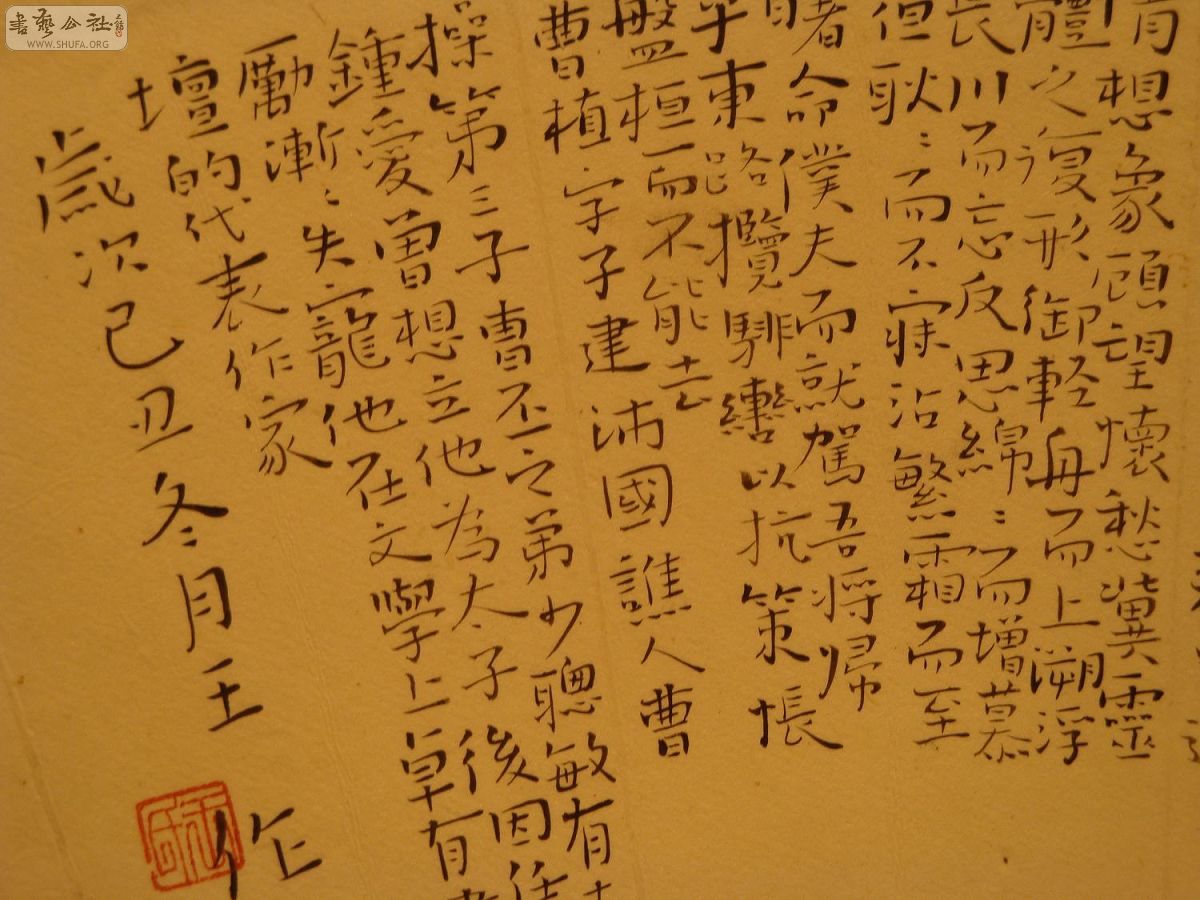 書藝公社
WWW.SHUFA.ORG
情想象顧望懷愁冀靈
體之復形御軽舟而上溯浮
長川而忘反思綿〻而增慕
但耿〻而不寐沾繁霜而至
曙命僕夫而就駕吾將歸
乎東路攬騑轡以抗策悵
盤桓而不能去
曹植字子建沛國譙人曹
操第三子曹丕之弟少聰敏有
鍾愛曾想立他為太子後因任
厲漸〻失寵他在文學上卓有
壇的代表作家
歲次己丑冬月王 作